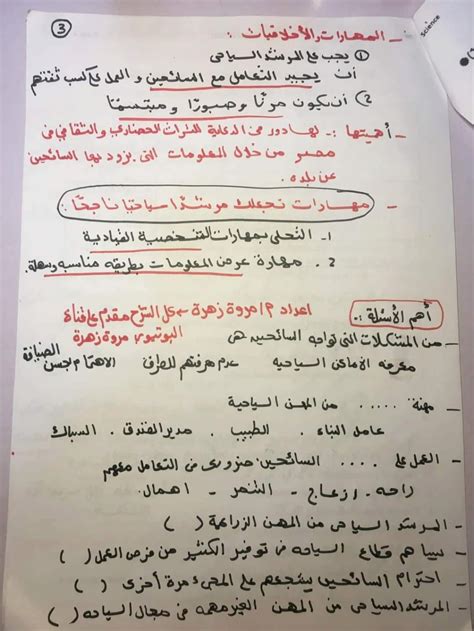 3
science
- المهارات والأخلاقيات :
① يجب على المرشد السياحى
أن يجيد التعامل مع السائحين و العمل على كسب ثقتهم
② أن يكون مرنًا و صبورًا و مبتسمًا
- أهميتها : لها دور فى الدعاية للتراث الحضارى والثقافى فى
مصر من خلال المعلومات التى يزود بها السائحين
عن بلده .
- مهارات تجعلك مرشدًا سياحيًا ناجحًا :
1- التحلى بمهارات الشخصية القيادية
2. مهارة عرض المعلومات بطريقه مناسبه وسهلة.
أهم الأسئلة :. اعداد م/ مروة زهرة ← كل الشرح مقدم على قناة
اليوتيوب مروة زهرة
- من المشكلات التى تواجه السائحين هى
معرفه الأماكن السياحيه عدم معرفتهم للطرق الاهتمام بحسن الضيافة
- مهنة ..... من المهن السياحية
عامل البناء . الطبيب . مدير الفندق . السباك
- العمل على .... السائحين ضرورى فى التعامل معهم
راحه . إزعاج . التنمر - اهمال .
- المرشد السياحى من المهن الزراعية ( )
- يساهم قطاع السياحه فى توفير الكثير من فرص العمل ( )
- احترام السائحين يشجعهم على المجىء مرة أخرى ( )
- المرشد السياحى من المهن الغير مهمه فى مجال السياحه ( )